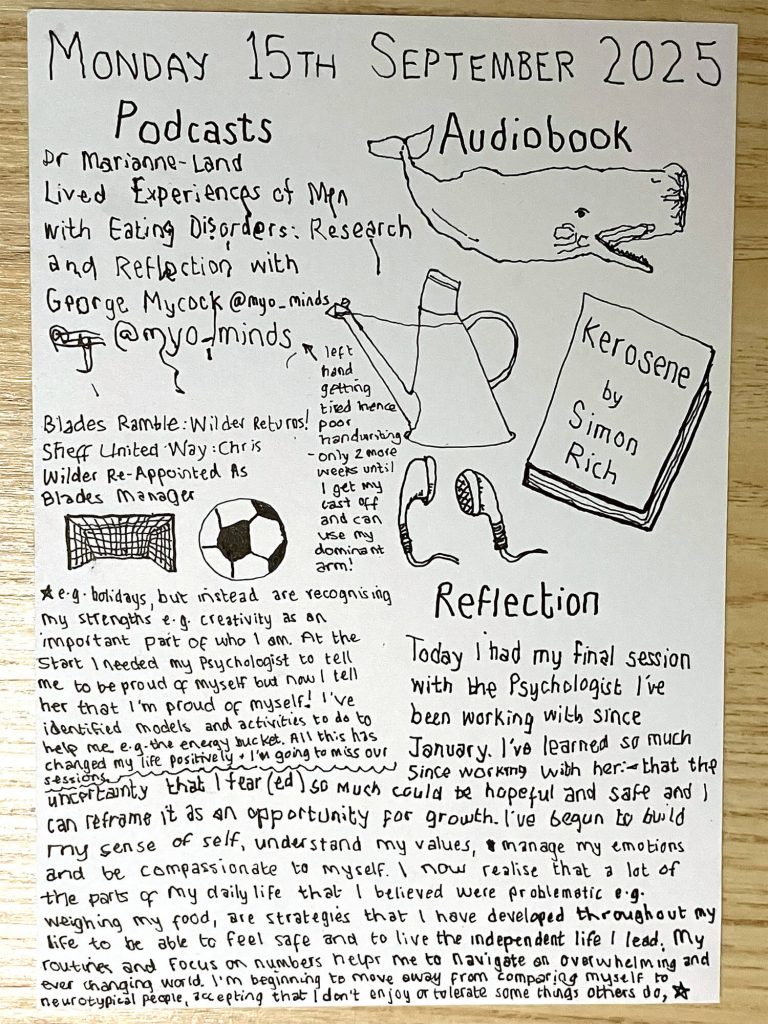 MONDAY 15TH SEPTEMBER 2025
Podcasts
Dr Marianne-Land
Lived Experiences of Men
with Eating Disorders: Research
and Reflection with
George Mycock @myo_minds
@myo_minds
left
hand
getting
tired hence
poor
handwriting
- only 2 more
weeks until
I get my
cast off
and can
use my
dominant
arm!
Blades Ramble: Wilder Returns!
Sheff United Way: Chris
Wilder Re-Appointed As
Blades Manager
Audiobook
Kerosene
by
Simon
Rich
Reflection
Today I had my final session
with the Psychologist I've
been working with since
January. I've learned so much
since working with her:- that the
uncertainty that I fear(ed) so much could be hopeful and safe and I
can reframe it as an opportunity for growth. I've begun to build
my sense of self, understand my values, manage my emotions
and be compassionate to myself. I now realise that a lot of
the parts of my daily life that I believed were problematic e.g.
weighing my food, are strategies that I have developed throughout my
life to be able to feel safe and to live the independent life I lead. My
routines and focus on numbers helps me to navigate an overwhelming and
ever changing world. I'm beginning to move away from comparing myself to
neurotypical people, accepting that I don't enjoy or tolerate some things others do, ★
★ e.g. holidays, but instead are recognising
my strengths e.g. creativity as an
important part of who I am. At the
start I needed my Psychologist to tell
me to be proud of myself but now I tell
her that I'm proud of myself! I've
identified models and activities to do to
help me e.g. the energy bucket. All this has
changed my life positively + I'm going to miss our
sessions